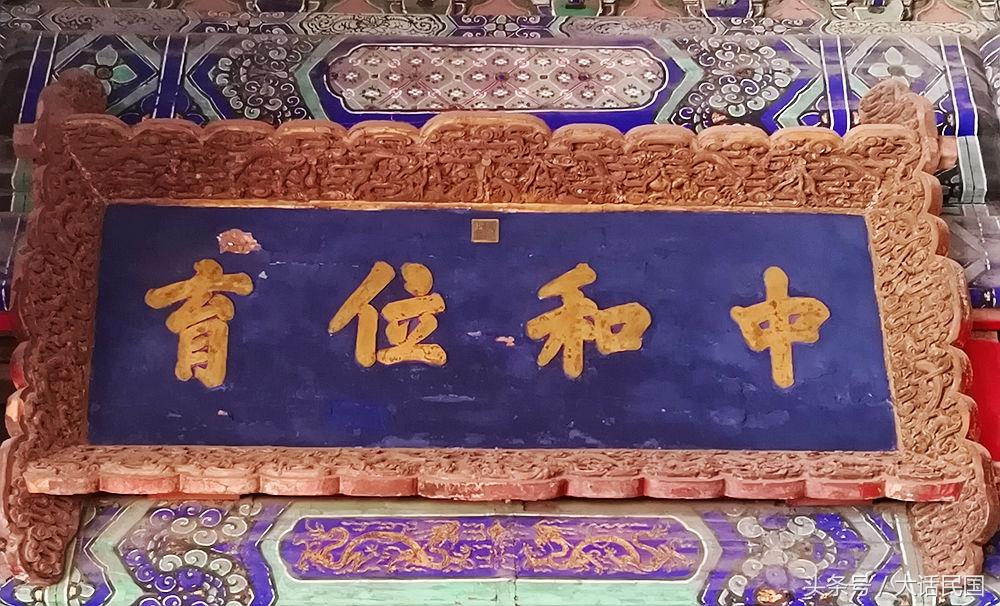 中和位育
头条号 / 大话民国